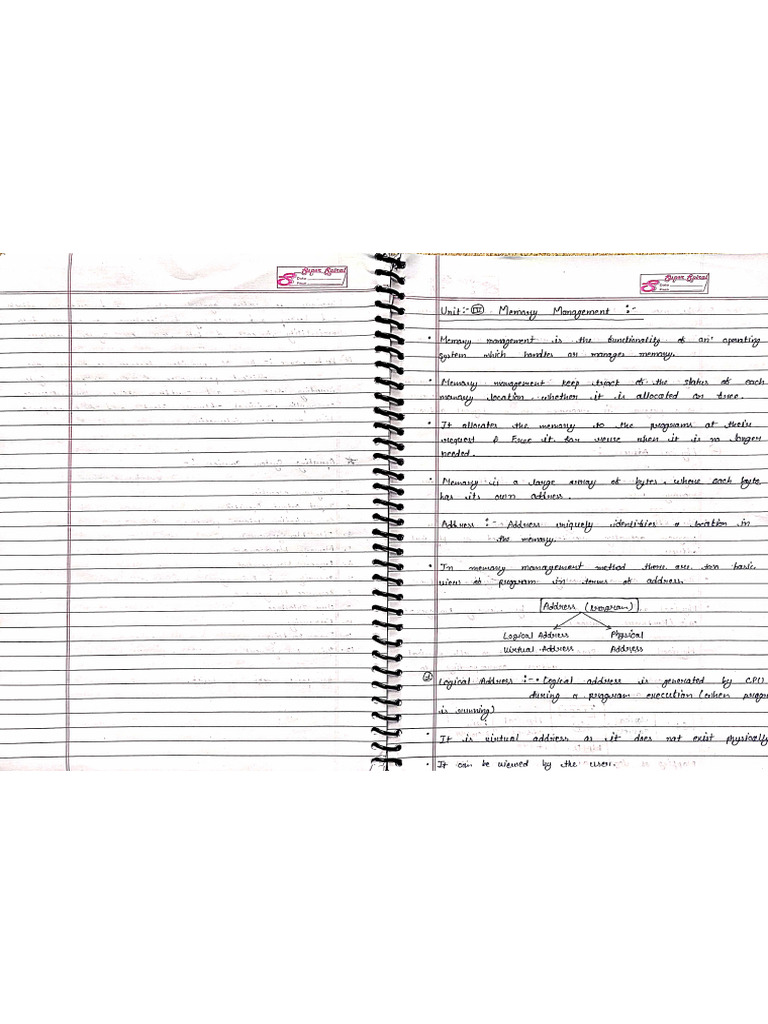 Super Spiral
Date
Page
Super Spiral
Date
Page
Unit:- III Memory Management :-
• Memory management is the functionality of an operating
system which handles or manages memory.
• Memory management keep tract of the status of each
memory location whether it is allocated or free.
• It allocates the memory to the programs at their
request & Free it for reuse when it is no longer
needed.
• Memory is a large array of bytes, where each byte
has its own address.
Address :- Address uniquely identifies a location in
the memory.
• In memory management method there are two basic
view to program in terms of address.
Address (program)
Logical Address Physical
Virtual Address Address
1 Logical Address :- • Logical address is generated by CPU
during a program execution (when progr
is running)
• It is virtual address as it does not exist physically
• It can be viewed by the user.